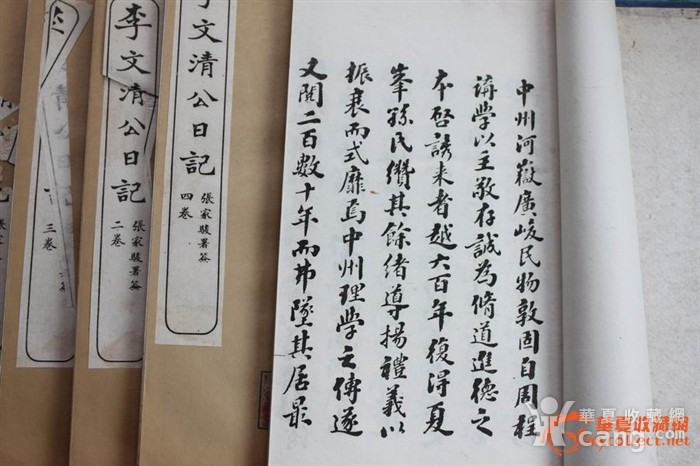 中州河嶽廣峻民物敦固自周程
講學以主敬存誠為脩道進德之
本啓誘來者越六百年復得夏
峯孫氏纘其餘緒導揚禮義以
振衰而式靡焉中州理學之傳遂
又閱二百數十年而弗墜其居最
李文清公日記
張家駿署簽
四卷
李文清公日記
張家駿署簽
二卷
清公日記
三卷
華夏收藏網
華夏收藏網
cang.com
collect.net